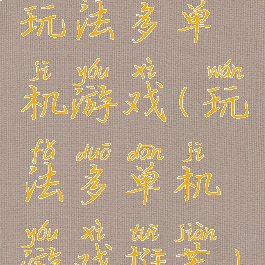 玩法多单
jī yóu xì wán
机游戏(玩
fǎ duō dān jī
法多单机
yóu xì tuī jiàn
游戏推荐)